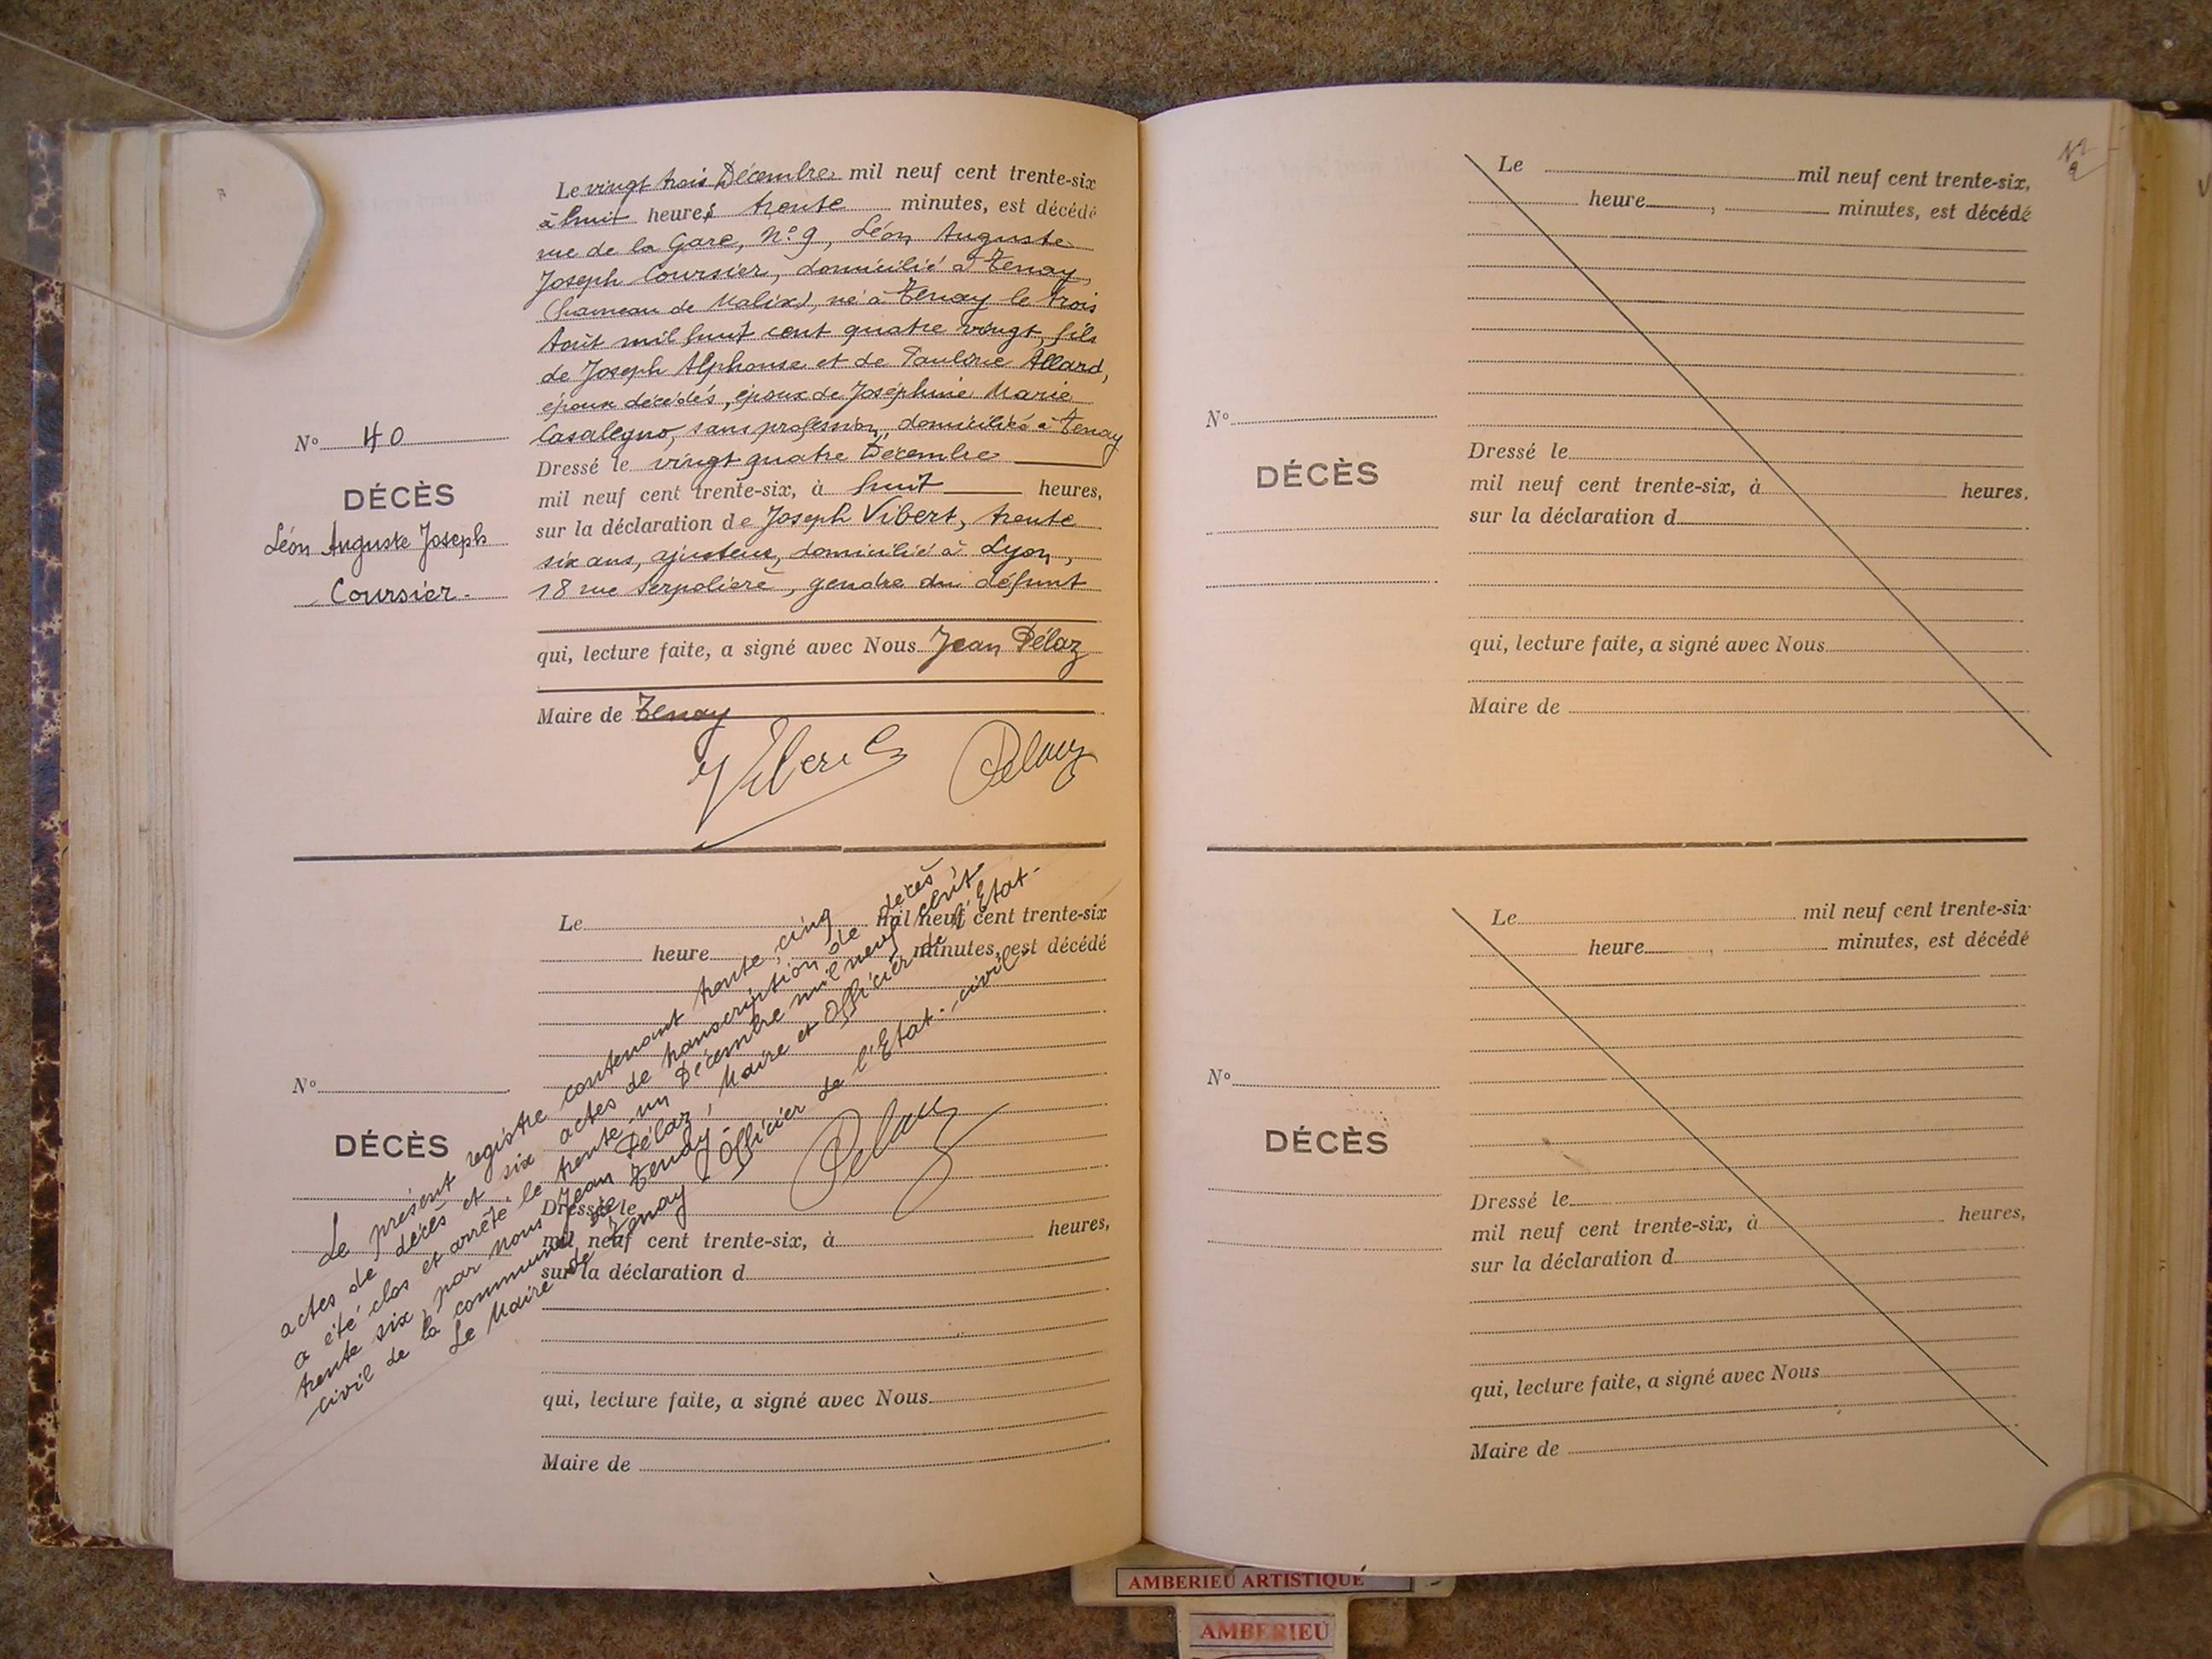 Le vingt trois Décembre mil neuf cent trente-six
à huit heures trente minutes, est décédé
rue de la Gare, N° 9, Léon Auguste
Joseph Coursier, domicilié à Tenay,
(hameau de Malix), né à Tenay le trois
Août mil huit cent quatre vingt, fils
de Joseph Alphonse et de Pauline Allard,
époux décédés, époux de Joséphine Marie
Casalegno, sans profession, domiciliée à Tenay
N° 40
DÉCÈS
Léon Auguste Joseph
Coursier.
Dressé le vingt quatre Décembre
mil neuf cent trente-six, à huit heures,
sur la déclaration de Joseph Vibert, trente
six ans, ajusteur, domicilié à Lyon,
18 rue Serpolière, gendre du défunt
qui, lecture faite, a signé avec Nous Jean Pélaz
Maire de Tenay
Vibert Pelaz
Le mil neuf cent trente-six
heure minutes, est décédé
N°
DÉCÈS
Dressé le
mil neuf cent trente-six, à heures,
sur la déclaration d
qui, lecture faite, a signé avec Nous
Maire de
Le présent registre contenant trente, cinq
actes de décès et six actes de transcription de décès,
a été clos et arrêté le trente un Décembre mil neuf cent
trente six, par nous Jean Pélaz, Maire et Officier de l'Etat-
civil de la commune de Tenay.
Le Maire de Tenay Officier de l'Etat-civil
Pelaz
Le mil neuf cent trente-six,
heure , minutes, est décédé
N°
DÉCÈS
Dressé le
mil neuf cent trente-six, à heures.
sur la déclaration d
qui, lecture faite, a signé avec Nous
Maire de
Le mil neuf cent trente-six
heure , minutes, est décédé
N°
DÉCÈS
Dressé le
mil neuf cent trente-six, à heures,
sur la déclaration d
qui, lecture faite, a signé avec Nous
Maire de
AMBERIEU ARTISTIQUE
AMBERIEU